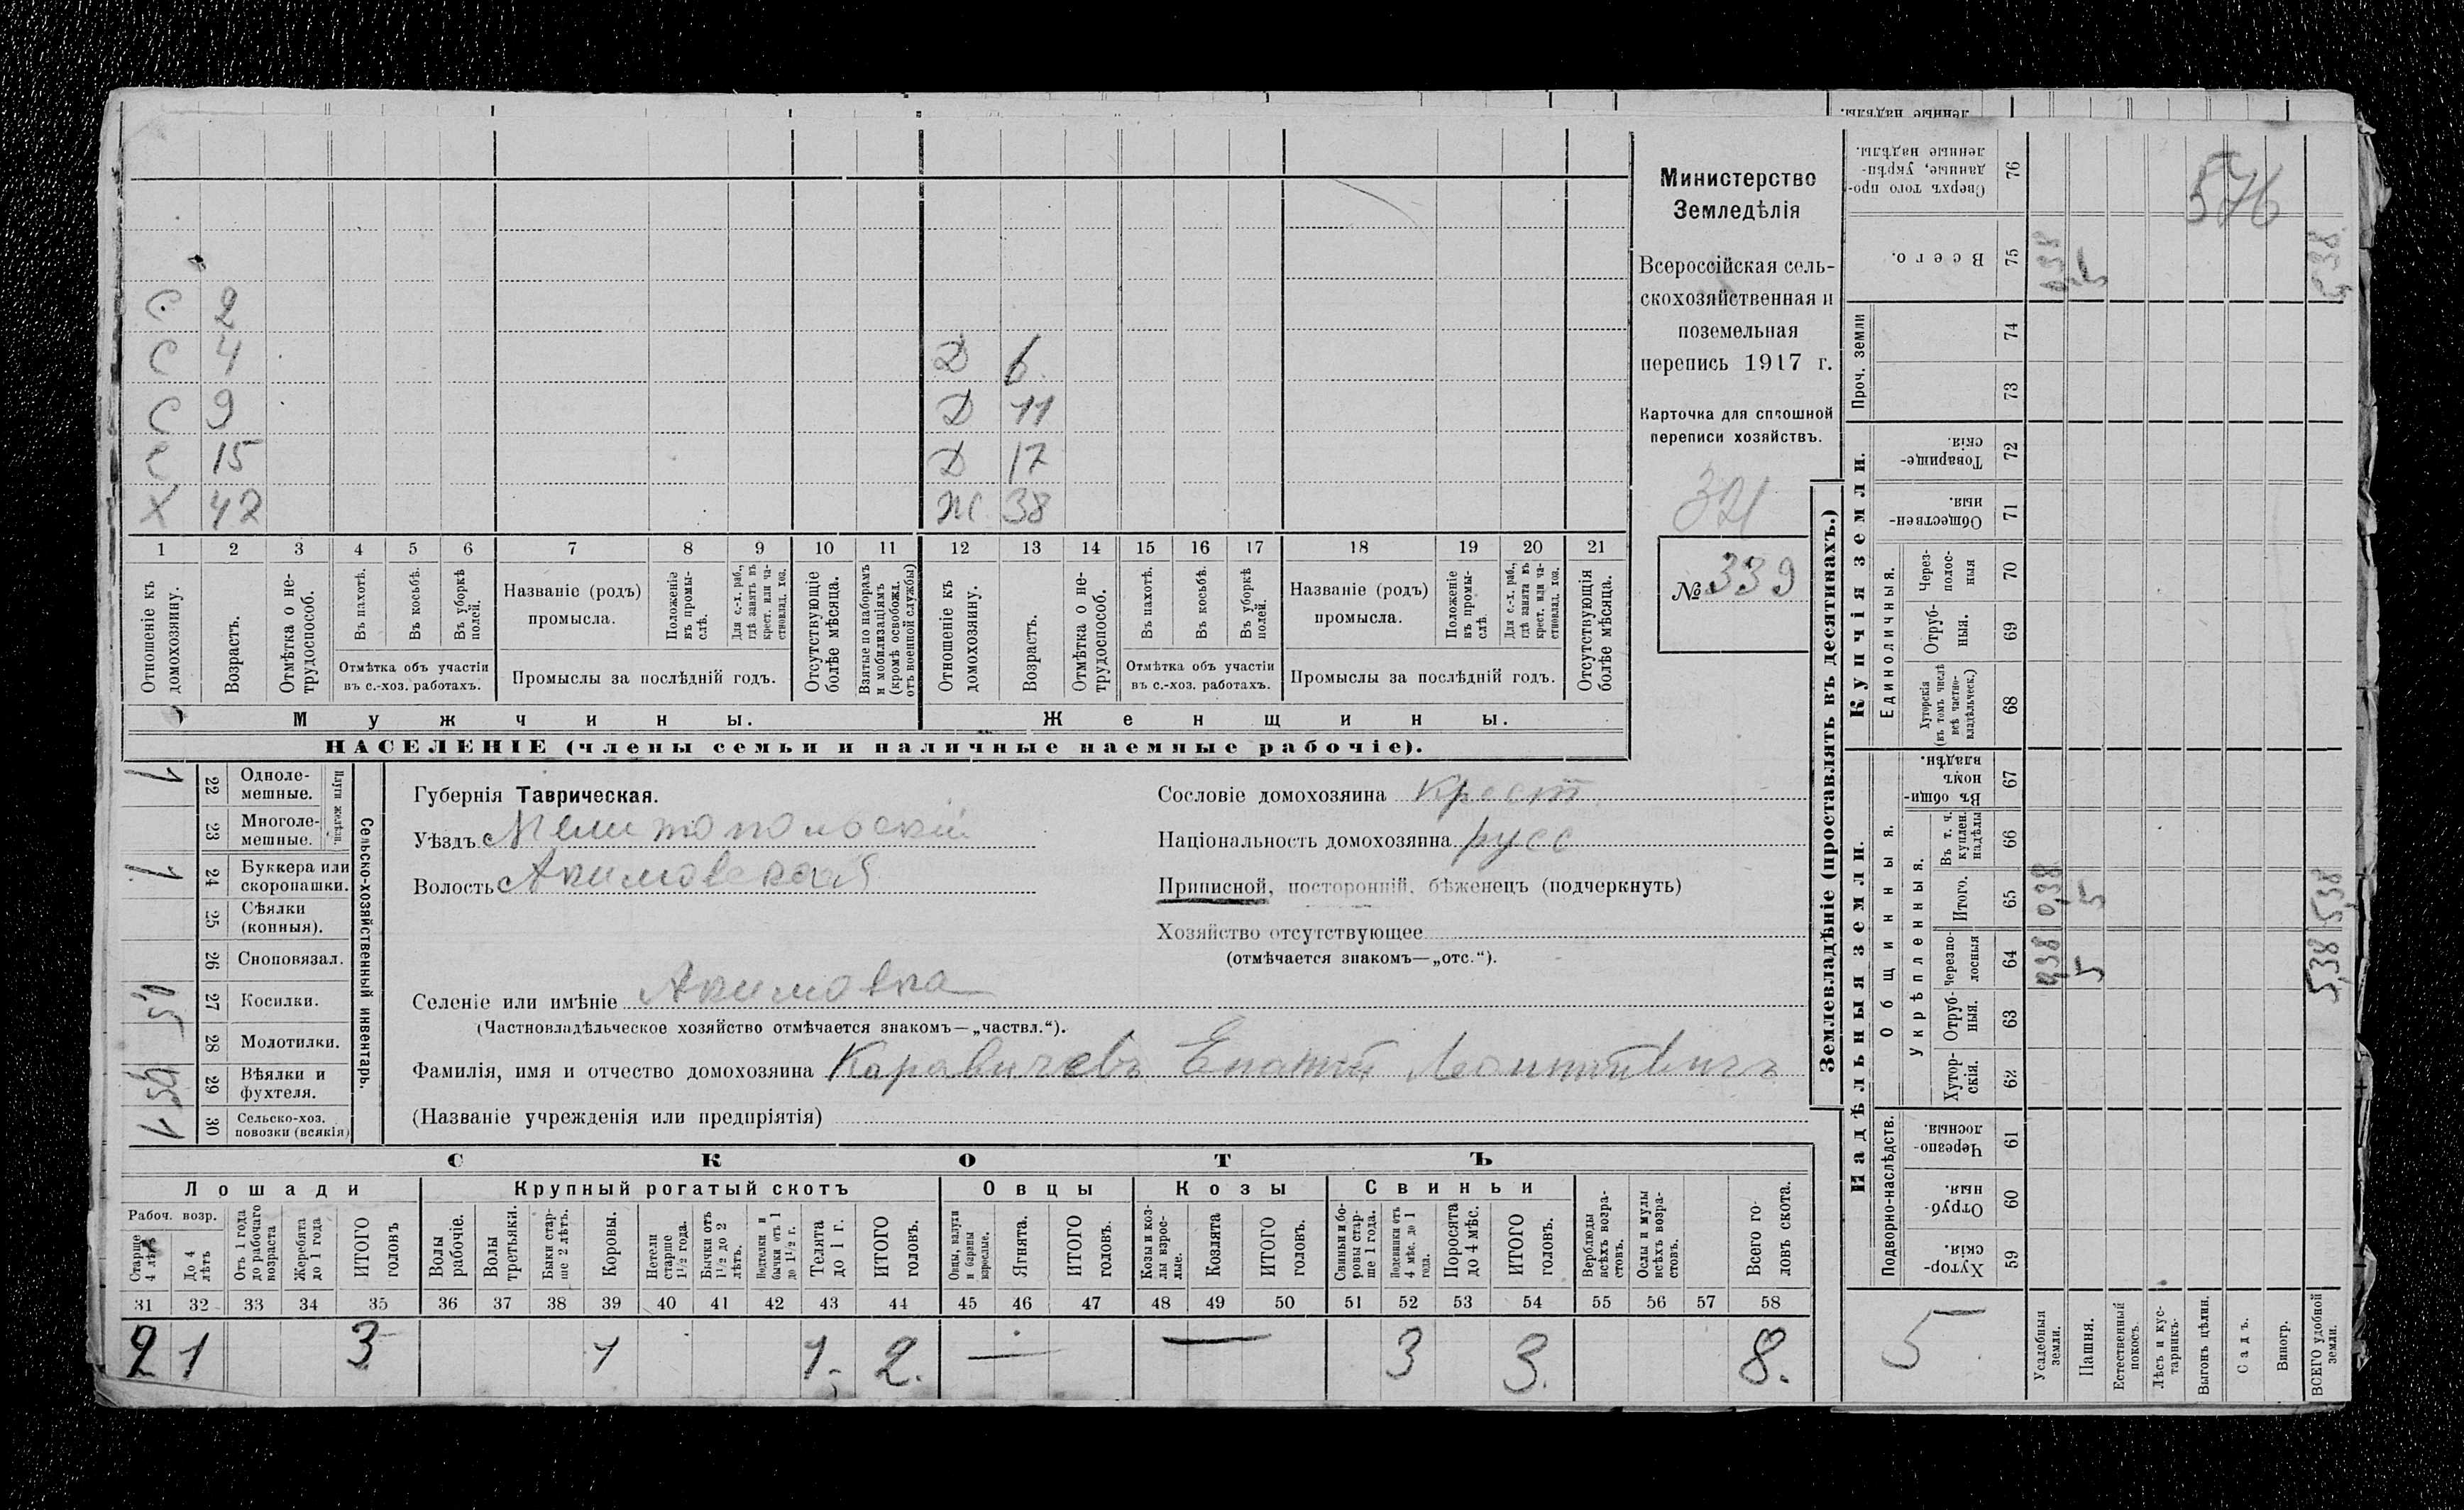 576
Министерство
Земледѣлія
Всероссійская сель-
скохозяйственная и
поземельная
перепись 1917 г.
Карточка для сплошной
переписи хозяйствъ.
321
№ 339
С 2
С 4 Д 6
С 9 Д 11
С 15 Д 17
Х 42 Ж 38
1 2 3 4 5 6 7 8 9 10 11 12 13 14 15 16 17 18 19 20 21
Отношеніе къ домохозяину.
Возрастъ.
Отмѣтка о не-трудоспособ.
Въ пахотѣ.
Въ косьбѣ.
Въ уборкѣ полей.
Отмѣтка объ участіи
въ с.-хоз. работахъ.
Названіе (родъ)
промысла.
Положеніе въ промы-слѣ.
Для с.-х. раб., гдѣ занятъ въ крест. или ча-стновлад. хоз.
Промыслы за послѣдній годъ.
Отсутствующіе болѣе мѣсяца.
Взятые по наборамъ и мобилизаціямъ (кромѣ освобожд. отъ военной службы)
Отношеніе къ домохозяину.
Возрастъ.
Отмѣтка о не-трудоспособ.
Въ пахотѣ.
Въ косьбѣ.
Въ уборкѣ полей.
Отмѣтка объ участіи
въ с.-хоз. работахъ.
Названіе (родъ)
промысла.
Положеніе въ промы-слѣ.
Для с.-х. раб., гдѣ занята въ крест. или ча-стновлад. хоз.
Промыслы за послѣдній годъ.
Отсутствующія болѣе мѣсяца.
Мужчины. Женщины.
НАСЕЛЕНІЕ (члены семьи и наличные наемные рабочіе).
Сельско-хозяйственный инвентарь.
Плуги желѣзн.
1 22 Одноле-мешные.
23 Многоле-мешные.
1 24 Буккера или скоропашки.
25 Сѣялки (конныя).
26 Сноповязал.
0,5 27 Косилки.
28 Молотилки.
29 Вѣялки и фухтеля.
1 30 Сельско-хоз. повозки (всякія)
Губернія Таврическая.
Уѣздъ Мелитопольскій
Волость Акимовская
Сословіе домохозяина крест
Національность домохозяина русс
Приписной, посторонній, бѣженецъ (подчеркнуть)
Хозяйство отсутствующее
(отмѣчается знакомъ—„отс.“).
Селеніе или имѣніе Акимовка
(Частновладѣльческое хозяйство отмѣчается знакомъ—„частвл.“).
Фамилія, имя и отчество домохозяина Каравичевъ Епатій
(Названіе учрежденія или предпріятія)
СКОТЪ
Лошади Крупный рогатый скотъ Овцы Козы Свиньи
Рабоч. возр.
Старше 4 лѣтъ
До 4 лѣтъ
Отъ 1 года до рабочаго возраста
Жеребята до 1 года
ИТОГО головъ
Волы рабочіе.
Волы тротьяки.
Быки стар-ше 2 лѣтъ.
Коровы.
Нетели старше 1½ года.
Бычки отъ 1½ до 2 лѣтъ.
Подтелки и бычки отъ 1 до 1½ г.
Телята до 1 г.
ИТОГО головъ.
Овцы, валухи и бараны взрослые.
Ягнята.
ИТОГО головъ.
Козы и коз-лы взрос-лые.
Козлята
ИТОГО головъ.
Свиньи и бо-ровы стар-ше 1 года.
Подсвинки отъ 4 мѣс. до 1 года.
Поросята до 4 мѣс.
ИТОГО головъ.
Верблюды всѣхъ возра-стовъ.
Ослы и мулы всѣхъ возра-стовъ.
Всего го-ловъ скота.
31 32 33 34 35 36 37 38 39 40 41 42 43 44 45 46 47 48 49 50 51 52 53 54 55 56 57 58
2 1 3 1 1 2. — — 3 3. 8.
Землевладѣніе (проставлять въ десятинахъ.)
Купчія земли.
Надѣльныя земли.
Проч. земли
Единоличныя.
Общинныя.
Укрѣпленныя.
Подворно-наслѣдств.
76 Сверхъ того про-данные, укрѣп-ленные надѣлы.
75 Всего. 0,38 5 5,38
74
73
72 Товарище-скія.
71 Обществен-ныя.
70 Через-полос-ныя
69 Отруб-ныя.
68 Хуторскія (въ томъ числѣ всѣ частно-владѣльческ.)
67 Въ общин-номъ владѣн.
66 Въ т. ч. куплен. надѣлы
65 Итого. 0,38 5 5,38
64 Черезпо-лосныя 0,38 5 5,38
63 Отруб-ныя.
62 Хутор-скія.
61 Черезпо-лосныя.
60 Отруб-ныя.
59 Хутор-скія.
5
Усадебныя земли.
Пашня.
Естественный покосъ.
Лѣсъ и кус-тарникъ.
Выгонъ цѣлин.
Садъ.
Виногр.
ВСЕГО удобной земли.
ленные надѣлы.